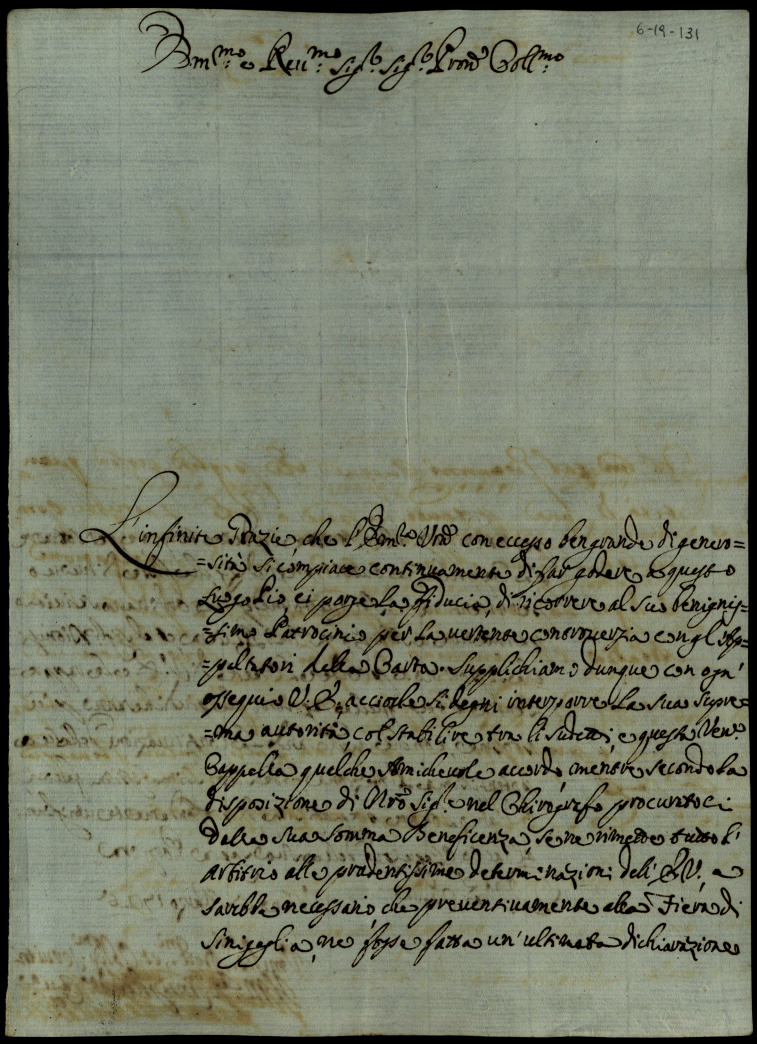 6-19-131
Em.mo e Reu.mo Sig.r Sig.r Pron̄e Coll.mo
L'infinite Grazie, che l'Em.za Vrā con eccesso ben grande di genero=
=sità si compiace continuamente di far godere a questo
Luogo Pio, ci porge la fiducia, di ricorrere al suo benignis=
=simo Patrocinio per la vertente controuerzia con gl'Ap=
=paltatori della Carta. Supplichiamo dunque con ogn'
ossequio V.E., accioche si degni interporre la sua supre=
=ma autorità, col stabilire tra li sudetti, e questa Ven.
Cappella qualche Amicheuole accordo, mentre secondo la
disposizione di Nrō Sig.re nel Chirografo procuratoci
dalla sua somma Beneficenza, se ne rimette tutto l'
arbitrio alle prudentissime determinazioni dell'E.V., e
sarebbe necessario, che preventiuamente alla Fiera di
Sinigaglia, ne fosse fatta un'ultimata dichiarazione